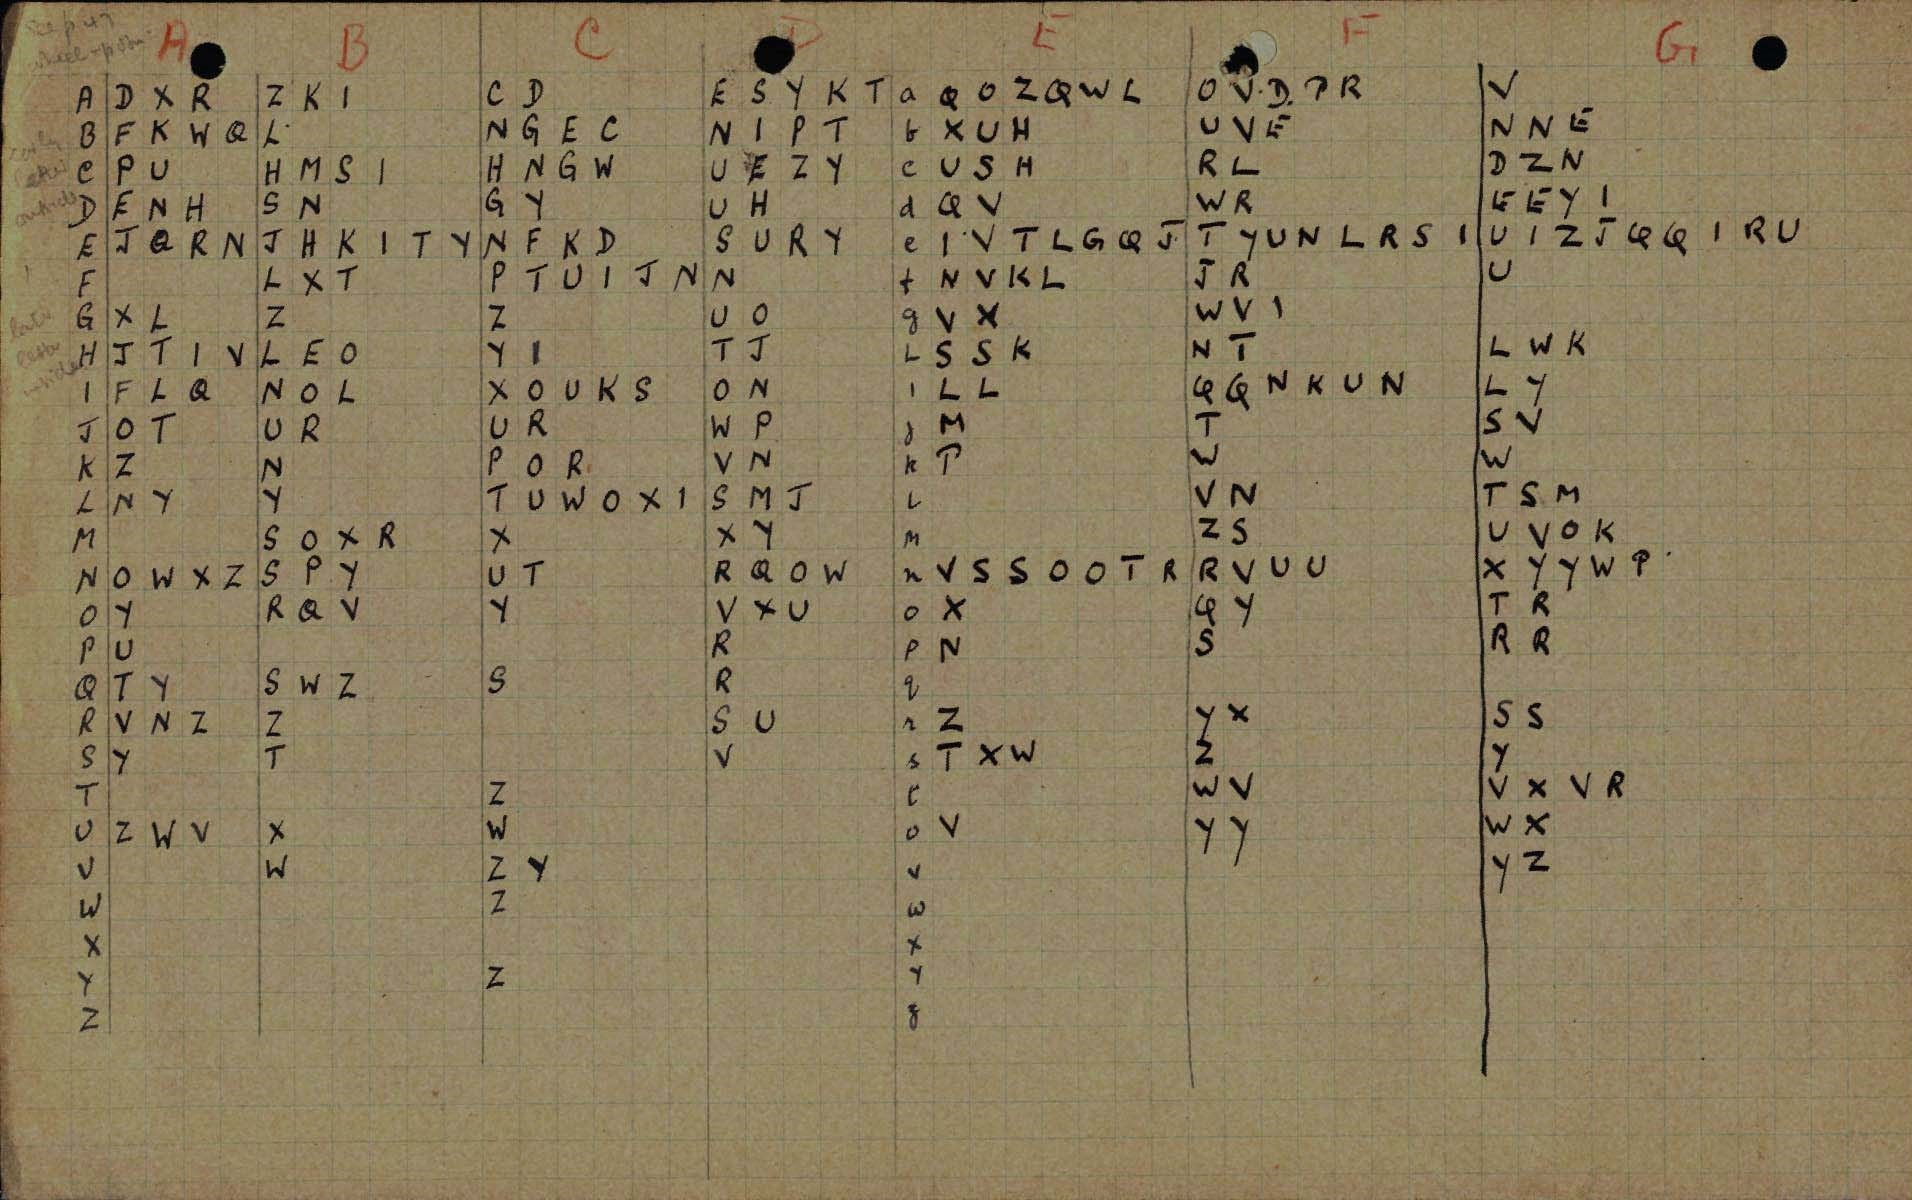 A B C D E F G
A D X R Z K I C D E S Y K T a Q O Z Q W L O V D P R V
B F K W Q L N G E C N I P T b X U H U V E N N E
C P U H M S I H N G W U E Z Y c U S H R L D Z N
D E N H S N G Y U H d Q V W R E E Y I
E J Q R N J H K I T Y N F K D S U R Y e I V T L G Q J T Y U N L R S I U I Z J Q Q I R U
F L X T P T U I J N N N f N V K L J R U
G X L Z Z U O g V X W V I
H J T I V L E O Y I T J L S S K N T L W K
I F L Q N O L X O U K S O N I L L Q Q N K U N L Y
J O T U R U R W P j M T S V
K Z N P O R V N k P W W
L N Y Y T U W O X I S M J L V N T S M
M S O X R X X Y m Z S U V O K
N O W X Z S P Y U T R Q O W n V S S O O T R R V U U X Y Y W P
O Y R Q V Y V X U o X Q Y T R
P U R P N S R R
Q T Y S W Z S R q
R V N Z Z S U r Z Y X S S
S Y T V s T X W Z Y
T Z t W V V X V R
U Z W V X W o V Y Y W X
V W Z Y v Y Z
W Z w
X x
Y Z Y
Z z